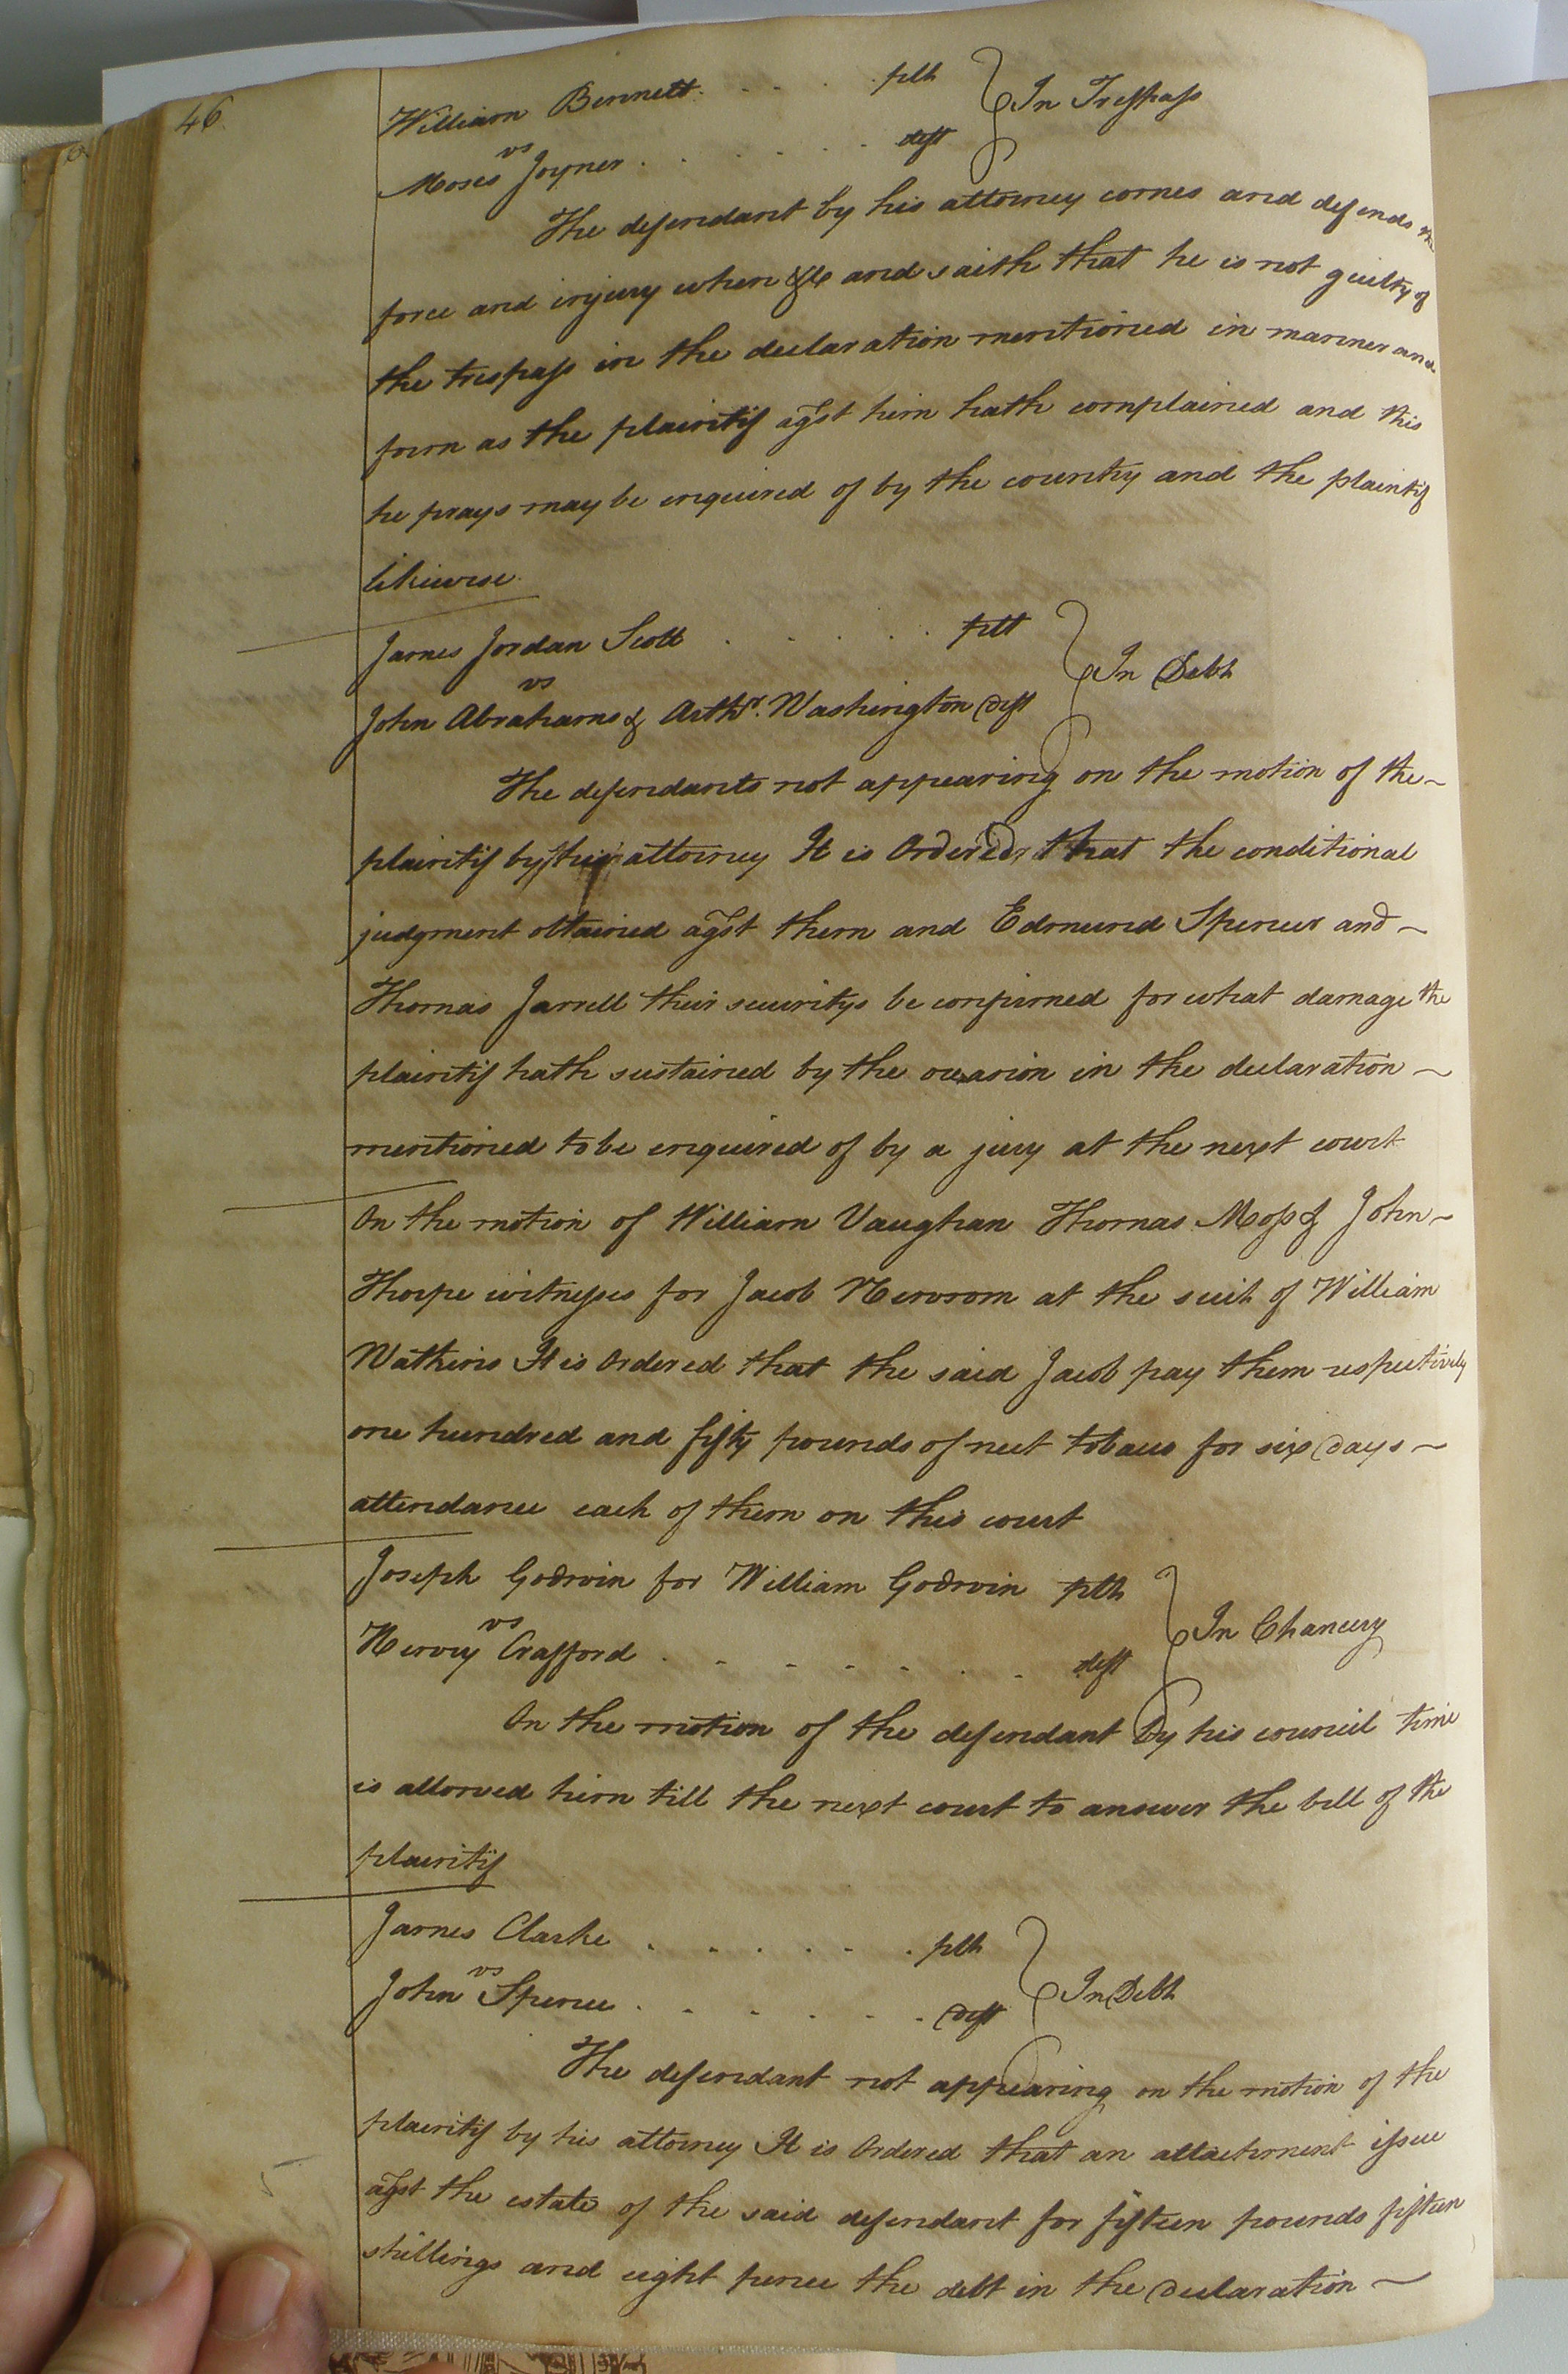 46
William Bennett . . . . plt
vs In Trespass
Moses Joyner . . . . . . deft
The defendant by his attorney comes and defends the
force and injury when &c and saith that he is not guilty of
the trespass in the declaration mentioned in manner and
form as the plaintif agst him hath complained and this
he prays may be enquired of by the country and the plaintif
likewise.
James Jordan Scott . . . . . plt
vs In Debt
John Abrahams & Arthr. Washington deft
The defendants not appearing on the motion of the
plaintif by his attorney It is Ordered that the conditional
judgment obtained agst them and Edmund Spencer and
Thomas Jarrell their securitys be confirmed for what damage the
plaintif hath sustained by the occasion in the declaration
mentioned to be enquired of by a jury at the next court
On the motion of William Vaughan Thomas Moss & John
Thorpe witnesses for Jacob Newsom at the suit of William
Watkins It is Ordered that the said Jacob pay them respectively
one hundred and fifty pounds of neet tobacco for six days
attendance each of them on this court
Joseph Godwin for William Godwin plt
vs In Chancery
Henry Crafford . . . . . . . deft
On the motion of the defendant by his council time
is allowed him till the next court to answer the bill of the
plaintif
James Clarke . . . . . . plt
vs In Debt
John Spence . . . . . . deft
The defendant not appearing on the motion of the
plaintif by his attorney It is Ordered that an attachment issue
agst the estate of the said defendant for fifteen pounds fifteen
shillings and eight pence the debt in the declaration